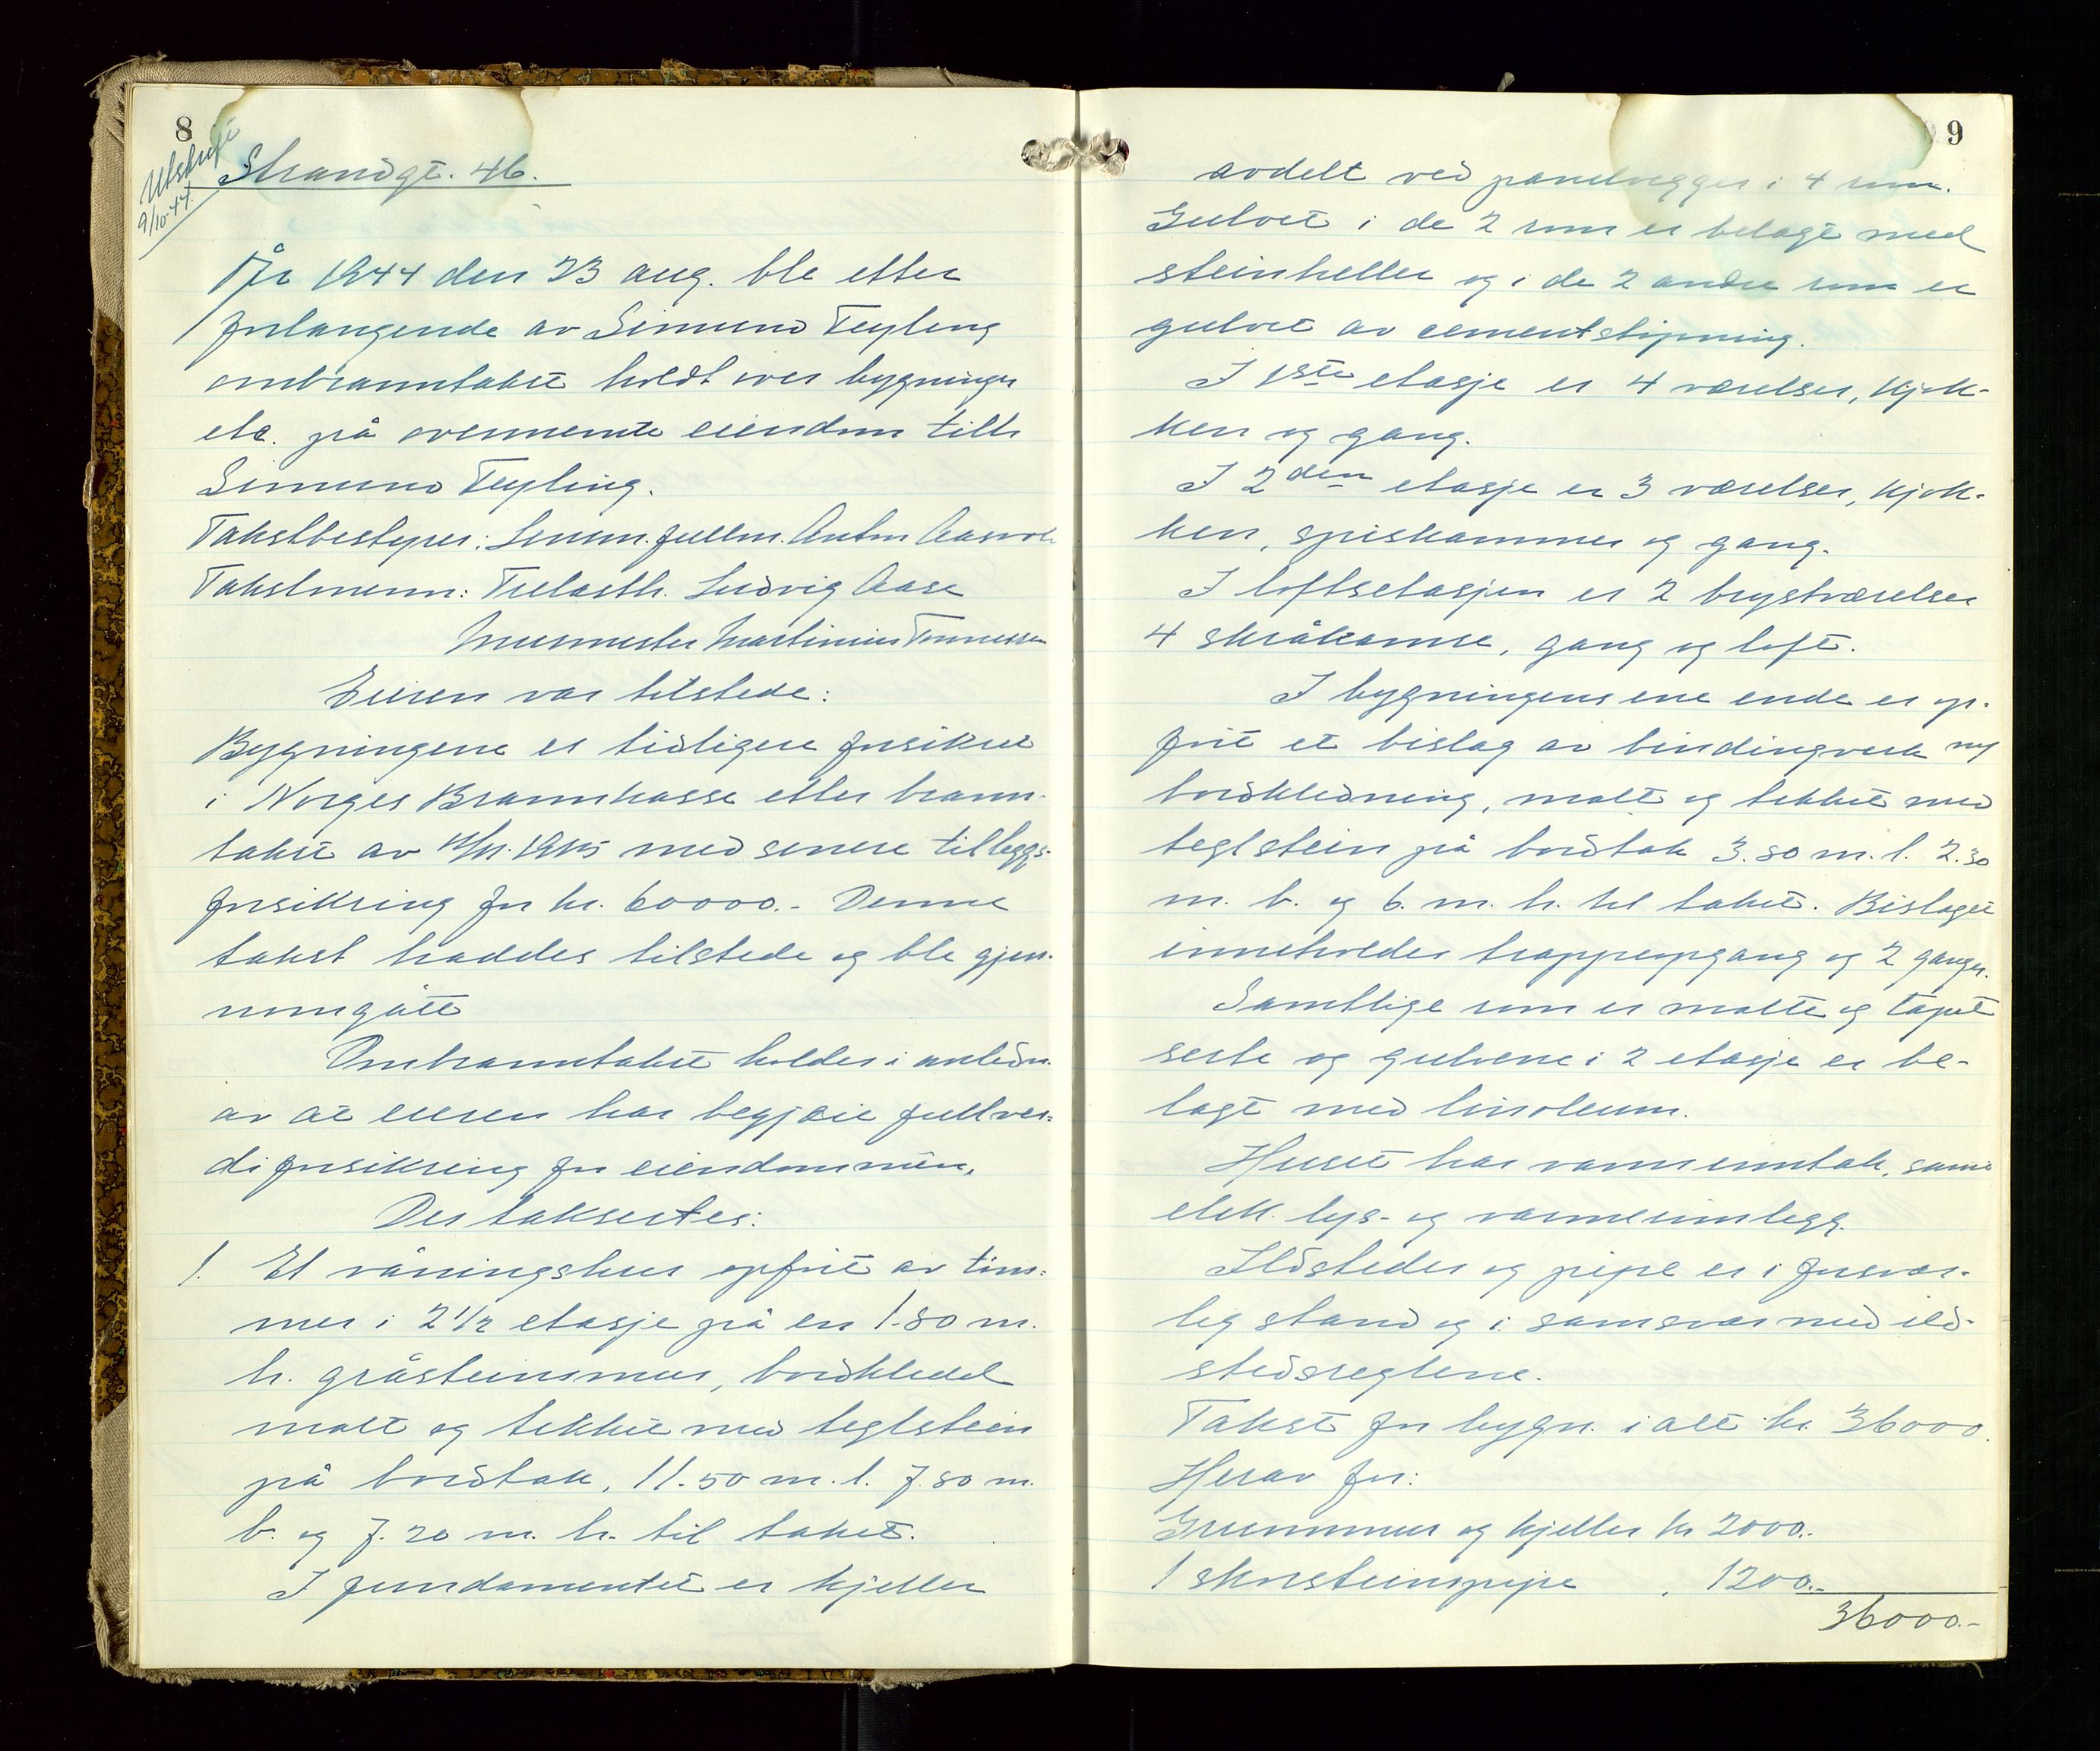 8
Utskrift
9/10-44.
Strandgt. 46.
År 1944 den 23 aug. ble etter
forlangende av Simund Feyling
ombranntakst holdt over bygninger
etc. på ovennemte eiendom tilh
Simund Feyling.
Takstbestyrer: Lensm. fullm. Anton
Takstmenn: Trelasth. Ludvig Aase
Murmester Martinius Tønnessen
Eieren var tilstede:
Bygningene er tidligere forsikret
i Norges Brannkasse etter brann-
takst av 1915 med senere tilleggs-
forsikring for kr. 60000.- Denne
takst haddes tilstede og ble gjen-
nomgått
Ombranntakst holdes i anledn.
av at eieren har begjært fullver-
di forsikring for eiendommen.
Der taksertes:
1. Et våningshus opført av tøm-
mer i 2 1/2 etasje på en 1.80 m.
h. gråsteinsmur, bordkledd
malt og tekket med teglstein
på bordtak, 11.50 m. l. 7.80 m.
b. og 7.20 m. h. til taket.
I fundamentet er kjeller
9
avdelt ved panelvegger i 4 rum.
Gulvet i de 2 rum er belagt med
steinheller og i de 2 andre rum er
gulvet av cementstøpning.
I 1ste etasje er 4 værelser, kjøk-
ken og gang.
I 2den etasje er 3 værelser, kjøk-
ken, spiskammer og gang.
I loftsetasjen er 2 brystværelser
4 skråkamre, gang og loft.
I bygningens ene ende er op-
ført et bislag av bindingverk m/
bordkledning, malt og tekket med
teglstein på bordtak 3.80 m. l. 2.30
m. b. og 6. m. h. til taket. Bislaget
inneholder trappeopgang og 2 ganger.
Samtlige rum er malte og tapet
serte og gulvene i 2 etasje er be-
lagt med linoleum.
Huset har vanninntak, samt
elek. lys- og varmeinnlegg.
Ildsteder og pipe er i forsvar-
lig stand og i samsvar med ild-
stedsreglene.
Takst for bygn. i alt kr. 36000.
Herav for:
Grunnmur og kjeller kr 2000.-
1 skorsteinspipe " 1200.-
36000.-